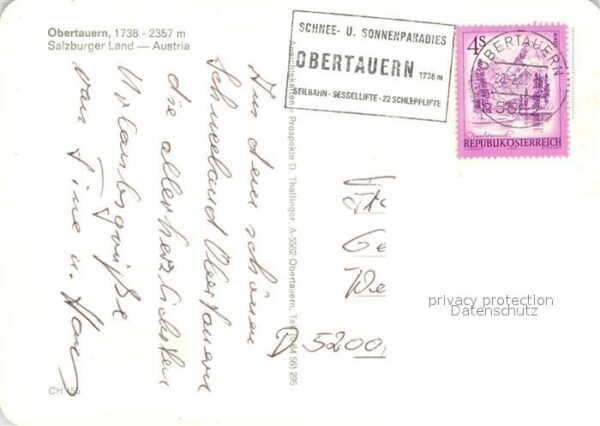 Obertauern, 1738 - 2357 m
Salzburger Land — Austria
SCHNEE- U. SONNENPARADIES
OBERTAUERN 1738 m
SEILBAHN - SESSELLIFTE - 22 SCHLEPPLIFTE
4S
OBERTAUERN
5562
REPUBLIK ÖSTERREICH
Aus dem schönen
Schneeland Obertauern
die allerherzlichsten
Urlaubsgrüße
von Tine u. Han
Ansichtskarten - Prospekte D. Thallinger, A-5562 Obertauern, Tel. 64 56) 295
Ge
We
D 5200
privacy protection
Datenschutz
CH 158